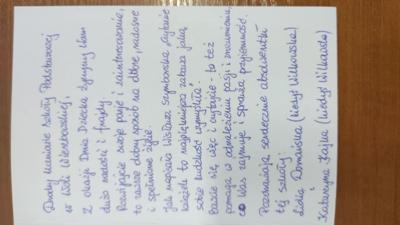 Drodzy Uczniowie Szkoły Podstawowej
w Woli Wierzbowskiej,
Z okazji Dnia Dziecka życzymy Wam
dużo radości i frajdy.
Rozwijajcie swoje pasje i zainteresowania,
to zawsze dobry sposób na dobre, radosne
i spełnione życie.
Jak napisała Wisława Szymborska, czytanie
książek to najpiękniejsza zabawa jaką
sobie ludzkość wymyśliła.
Bawcie się, więc i czytajcie - to też
pomaga w odnalezieniu pasji i zrozumieniu,
co Was zajmuje i sprawia przyjemność.
Pozdrawiają serdecznie absolwentki
tej szkoły:
Lidia Domańska (kiedyś Wilkowska)
i
Katarzyna Bajka (kiedyś Wilkowska)